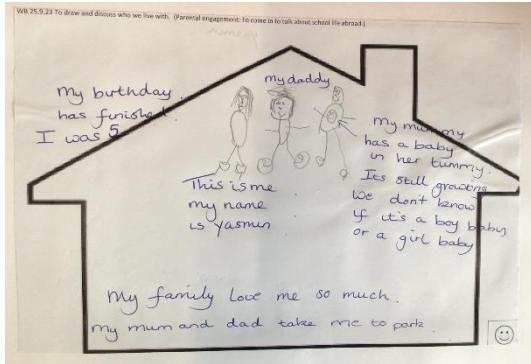 WB 25.9.23 To draw and discuss who we live with. (Parental engagement: To come in to talk about school life abroad.)
my daddy
My birthday
has finished
I was 5
My mummy
has a baby
in her tummy.
Its still growing
We don't know
if it's a boy baby
or a girl baby
This is me
my name
is Yasmin
My family love me so much.
My mum and dad take me to park.